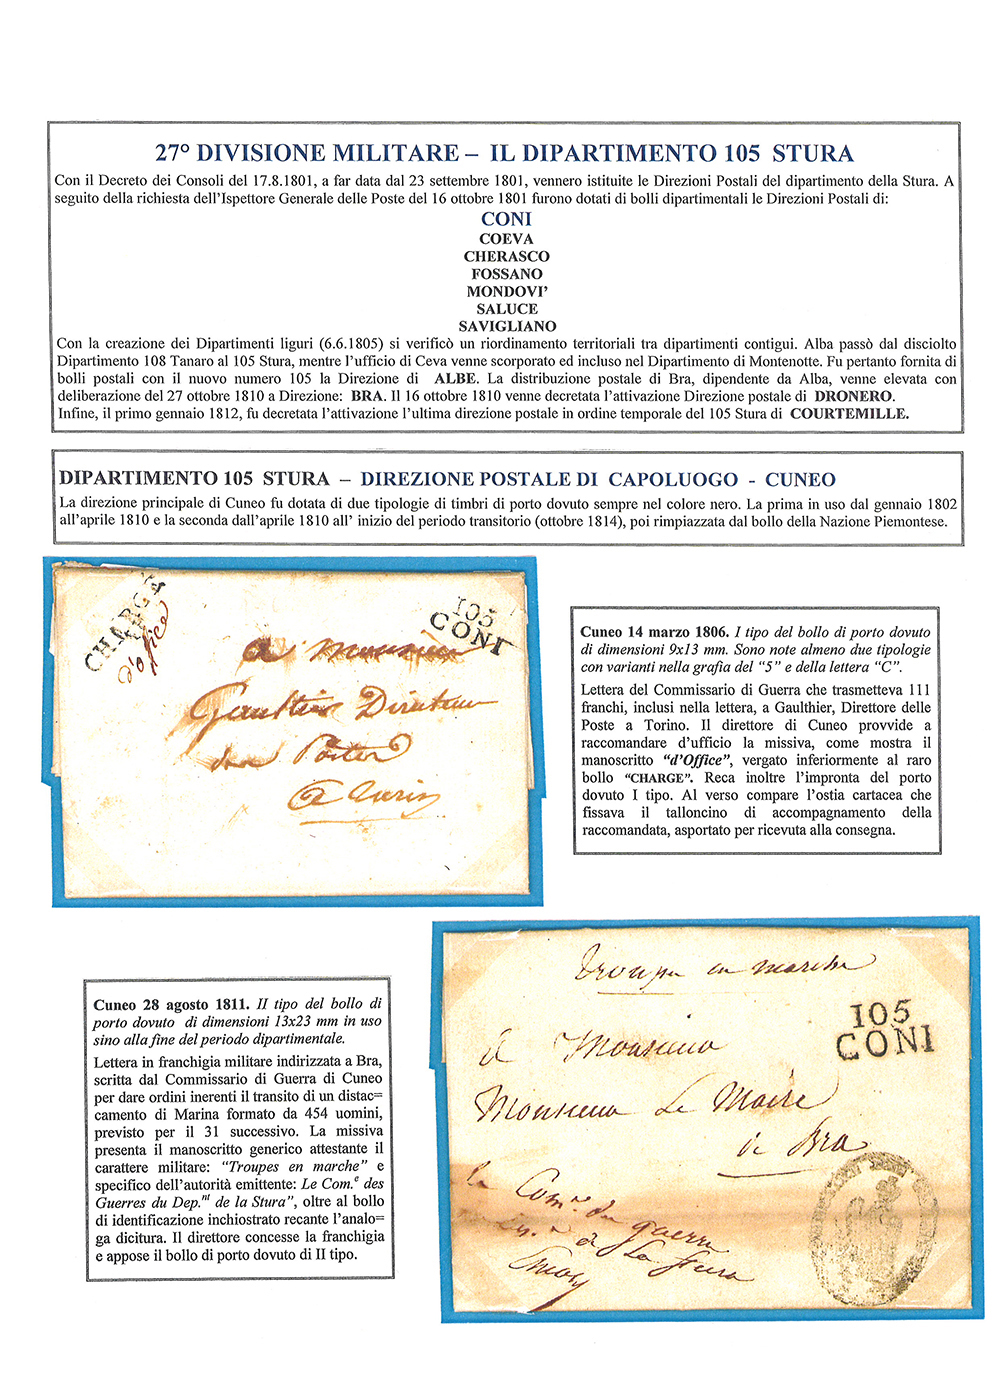 27° DIVISIONE MILITARE – IL DIPARTIMENTO 105 STURA
Con il Decreto dei Consoli del 17.8.1801, a far data dal 23 settembre 1801, vennero istituite le Direzioni Postali del dipartimento della Stura. A
seguito della richiesta dell'Ispettore Generale delle Poste del 16 ottobre 1801 furono dotati di bolli dipartimentali le Direzioni Postali di:
CONI
COEVA
CHERASCO
FOSSANO
MONDOVI'
SALUCE
SAVIGLIANO
Con la creazione dei Dipartimenti liguri (6.6.1805) si verificò un riordinamento territoriali tra dipartimenti contigui. Alba passò dal disciolto
Dipartimento 108 Tanaro al 105 Stura, mentre l'ufficio di Ceva venne scorporato ed incluso nel Dipartimento di Montenotte. Fu pertanto fornita di
bolli postali con il nuovo numero 105 la Direzione di ALBE. La distribuzione postale di Bra, dipendente da Alba, venne elevata con
deliberazione del 27 ottobre 1810 a Direzione: BRA. Il 16 ottobre 1810 venne decretata l'attivazione Direzione postale di DRONERO.
Infine, il primo gennaio 1812, fu decretata l'attivazione l'ultima direzione postale in ordine temporale del 105 Stura di COURTEMILLE.
DIPARTIMENTO 105 STURA – DIREZIONE POSTALE DI CAPOLUOGO - CUNEO
La direzione principale di Cuneo fu dotata di due tipologie di timbri di porto dovuto sempre nel colore nero. La prima in uso dal gennaio 1802
all'aprile 1810 e la seconda dall'aprile 1810 all' inizio del periodo transitorio (ottobre 1814), poi rimpiazzata dal bollo della Nazione Piemontese.
CHARGÉ
d'office
105
CONI
a monsieur
Gaultier Directeur
des Postes
a Turin
Cuneo 14 marzo 1806. I tipo del bollo di porto dovuto
di dimensioni 9x13 mm. Sono note almeno due tipologie
con varianti nella grafia del "5" e della lettera "C".
Lettera del Commissario di Guerra che trasmetteva 111
franchi, inclusi nella lettera, a Gaulthier, Direttore delle
Poste a Torino. Il direttore di Cuneo provvide a
raccomandare d'ufficio la missiva, come mostra il
manoscritto "d'Office", vergato inferiormente al raro
bollo "CHARGE". Reca inoltre l'impronta del porto
dovuto I tipo. Al verso compare l'ostia cartacea che
fissava il talloncino di accompagnamento della
raccomandata, asportato per ricevuta alla consegna.
Cuneo 28 agosto 1811. II tipo del bollo di
porto dovuto di dimensioni 13x23 mm in uso
sino alla fine del periodo dipartimentale.
Lettera in franchigia militare indirizzata a Bra,
scritta dal Commissario di Guerra di Cuneo
per dare ordini inerenti il transito di un distac=
camento di Marina formato da 454 uomini,
previsto per il 31 successivo. La missiva
presenta il manoscritto generico attestante il
carattere militare: "Troupes en marche" e
specifico dell'autorità emittente: Le Com.e des
Guerres du Dep.nt de la Stura", oltre al bollo
di identificazione inchiostrato recante l'analo=
ga dicitura. Il direttore concesse la franchigia
e appose il bollo di porto dovuto di II tipo.
Troupes en marche
105
CONI
à Monsieur
Monsieur Le Maire
de Bra
Le Com.re des guerres
de La Stura